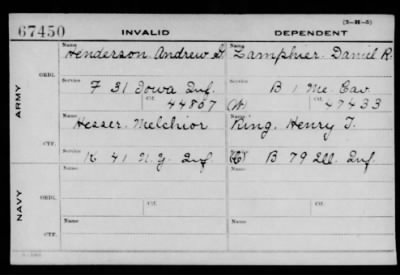 (3-H-5)
67450 INVALID DEPENDENT
Name Name
Henderson Andrew D. Lamphier Daniel R.
ORIG.
Service Service
F 31 Iowa Inf. B 1 Me Cav
Ctf. Ctf.
44807 (W) 47433
ARMY
Name Name
Hesser Melchior Ring Henry T.
CTF.
Service Service
K 41 N.Y. Inf B 79 Ill Inf
NAVY
ORIG.
Name Name
Ctf. Ctf.
CTF.
Name Name